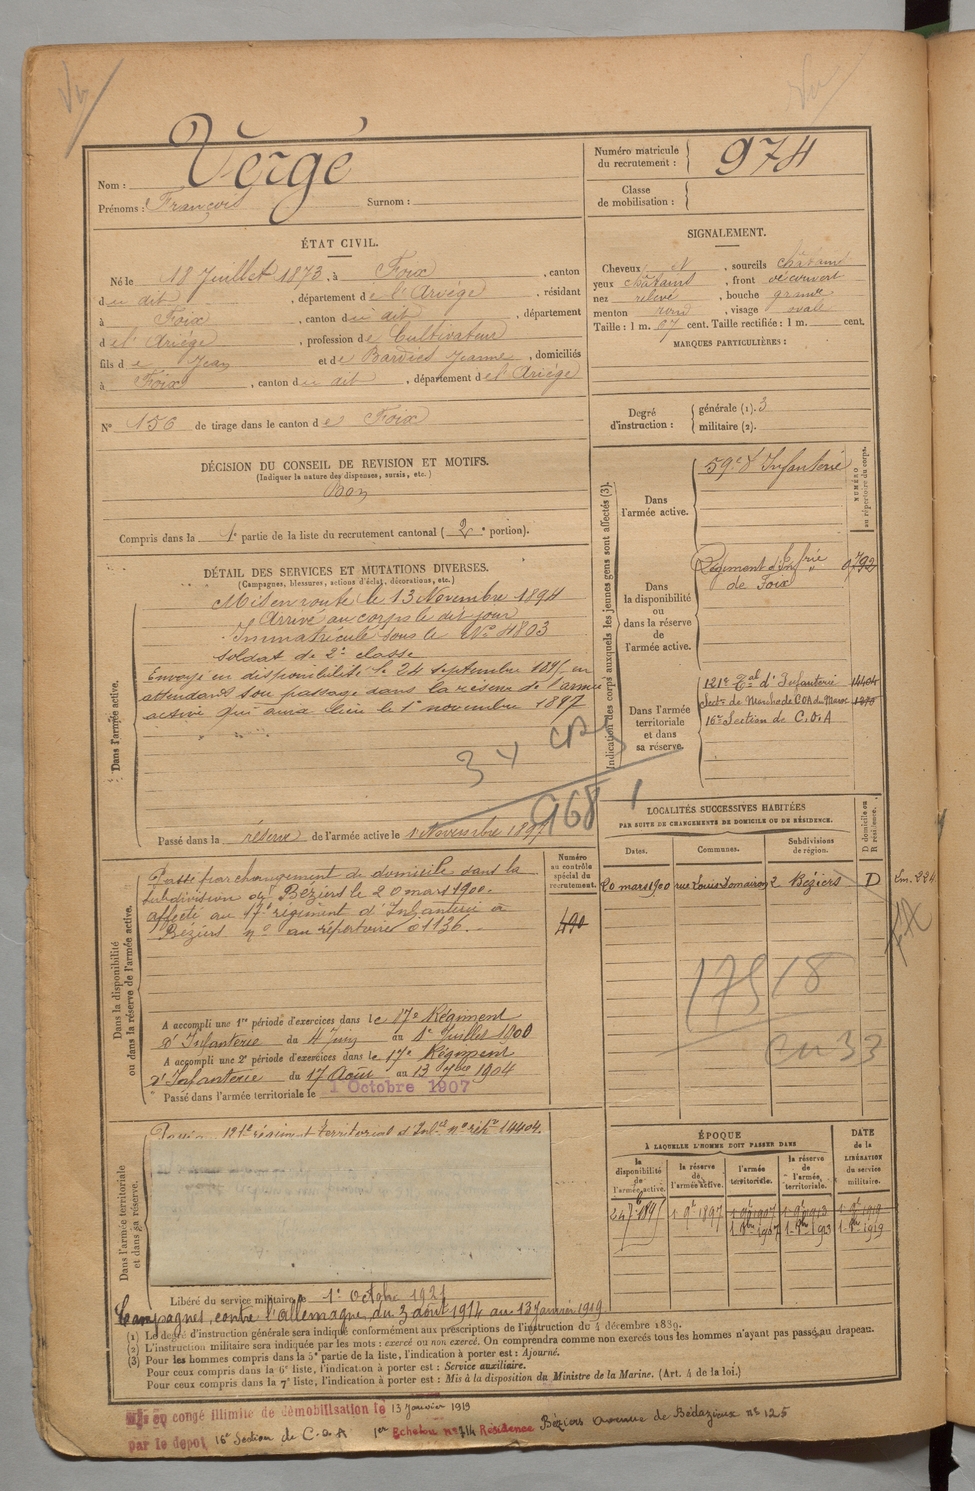 Vu
Vu
Nom : Vergé
Prénoms : François Surnom :
Numéro matricule
du recrutement : 974
Classe
de mobilisation :
ÉTAT CIVIL.
Né le 18 Juillet 1873, à Foix, canton
du dit, département de l'Ariège, résidant
à Foix, canton du dit, département
de l'Ariège, profession de Cultivateur
fils de Jean et de Jeanne, domiciliés
à Foix, canton du dit, département de l'Ariège
N° 156 de tirage dans le canton de Foix
SIGNALEMENT.
Cheveux et, sourcils châtains
yeux châtains, front découvert
nez relevé, bouche grande
menton rond, visage ovale
Taille : 1 m. 67 cent. Taille rectifiée : 1 m. cent.
MARQUES PARTICULIÈRES :
Degré
d'instruction :
générale (1). 3
militaire (2).
DÉCISION DU CONSEIL DE REVISION ET MOTIFS.
(Indiquer la nature des dispenses, sursis, etc.)
Bon
Compris dans la 1e partie de la liste du recrutement cantonal (2e portion).
DÉTAIL DES SERVICES ET MUTATIONS DIVERSES.
(Campagnes, blessures, actions d'éclat, décorations, etc.)
Dans l'armée active.
Mis en route le 13 Novembre 1894
Arrivé au corps le dit jour
Immatriculé sous le N° 4803
soldat de 2e classe
Envoyé en disponibilité le 24 septembre 1895 en
attendant son passage dans la réserve de l'armée
active qui aura lieu le 1er novembre 1897
968
Passé dans la réserve de l'armée active le 1 Novembre 1897
Indication des corps auxquels les jeunes gens sont affectés (3).
NUMÉRO
au répertoire du corps.
Dans
l'armée active.
59e d'Infanterie
Dans
la disponibilité
ou
dans la réserve
de
l'armée active.
Régiment d'Infrie
de Foix 0792
Dans l'armée
territoriale
et dans
sa réserve.
121e Tal d'Infanterie 14404
Sect. de Marche de COA du Maroc
16e Section de C.O.A
LOCALITÉS SUCCESSIVES HABITÉES
PAR SUITE DE CHANGEMENTS DE DOMICILE OU DE RÉSIDENCE.
D domicile ou
R résidence.
Dates. Communes. Subdivisions
de région.
20 mars 1900 rue Louis Domairon 2 Béziers D
17518
Dans la disponibilité
ou dans la réserve de l'armée active.
Numéro
au contrôle
spécial du
recrutement.
490
Passé par changement de domicile dans la
subdivision de Béziers le 20 mars 1900.
affecté au 17e régiment d'Infanterie à
Béziers n° au répertoire 01136.
A accompli une 1re période d'exercices dans le 17e Régiment
d'Infanterie du 4 Juin au 1er Juillet 1900
A accompli une 2e période d'exercices dans le 17e Régiment
d'Infanterie du 17 Août au 13 7bre 1904
Passé dans l'armée territoriale le 1 Octobre 1907
Dans l'armée territoriale
et dans sa réserve.
121e régiment territorial d'Infie n° rép. 14404.
Libéré du service militaire le 1er Octobre 1921
Campagnes, contre l'allemagne, du 3 août 1914 au 13 Janvier 1919
ÉPOQUE
À LAQUELLE L'HOMME DOIT PASSER DANS
DATE
de la
LIBÉRATION
du service
militaire.
la
disponibilité
de
l'armée active.
la réserve
de
l'armée active.
l'armée
territoriale.
la réserve
de
l'armée
territoriale.
24 7bre 1895 1 9bre 1897 1 9bre 1907 1 9bre 1913 1 9bre 1919
1 8bre 1907 1 8bre 1913 1 8bre 1919
(1) Le degré d'instruction générale sera indiqué conformément aux prescriptions de l'instruction du 4 décembre 1889.
(2) L'instruction militaire sera indiquée par les mots : exercé ou non exercé. On comprendra comme non exercés tous les hommes n'ayant pas passé au drapeau.
(3) Pour les hommes compris dans la 5e partie de la liste, l'indication à porter est : Ajourné.
Pour ceux compris dans la 6e liste, l'indication à porter est : Service auxiliaire.
Pour ceux compris dans la 7e liste, l'indication à porter est : Mis à la disposition du Ministre de la Marine. (Art. 4 de la loi.)
Mis en congé illimité de démobilisation le 13 janvier 1919
par le dépôt 16e Section de C.O.A 1er Echelon n° 714 Résidence Béziers avenue de Bédarieux n° 125